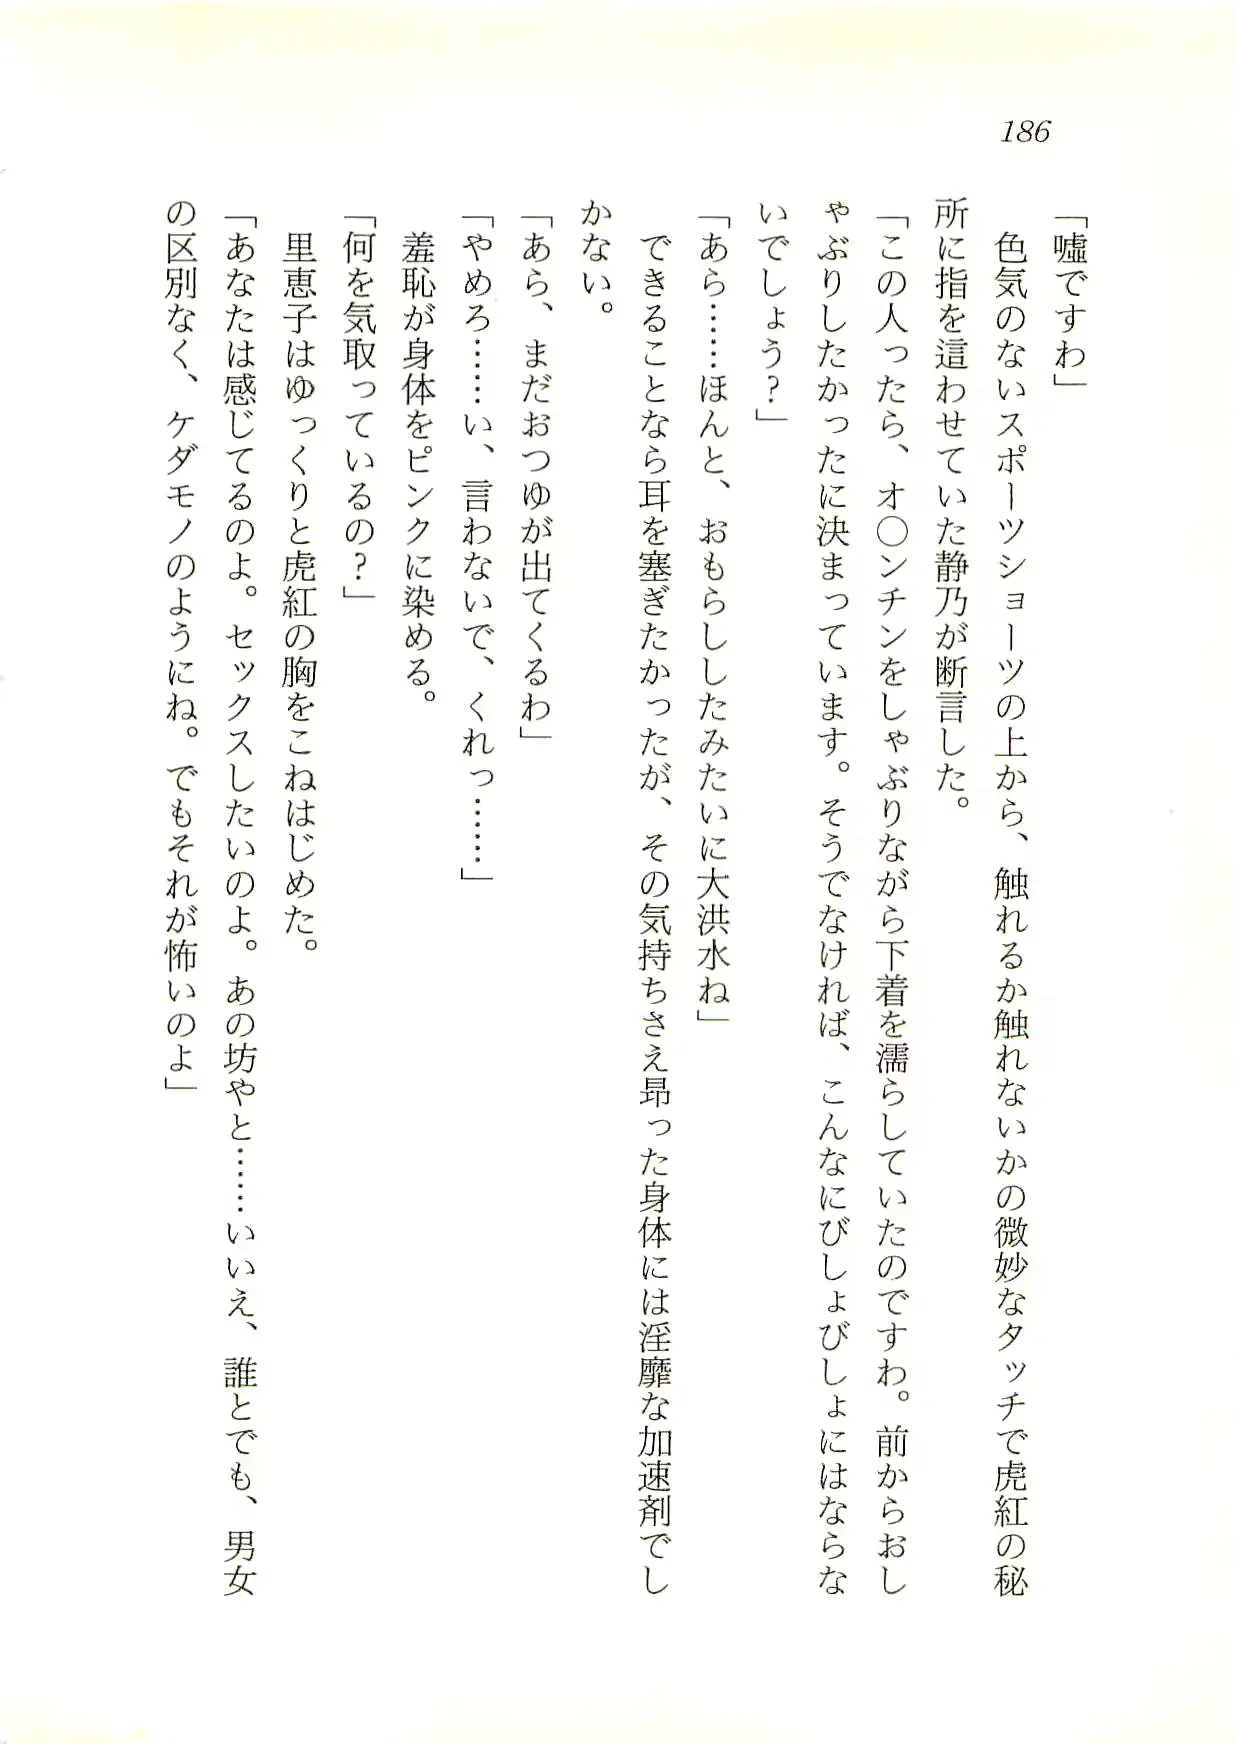 186
「嘘ですわ」
色気のないスポーツショーツの上から、触れるか触れないかの微妙なタッチで虎紅の秘
所に指を這わせていた静乃が断言した。
「この人ったら、オ〇ンチンをしゃぶりながら下着を濡らしていたのですわ。前からおし
ゃぶりしたかったに決まっています。そうでなければ、こんなにびしょびしょにはならな
いでしょう？」
「あら……ほんと、おもらししたみたいに大洪水ね」
できることなら耳を塞ぎたかったが、その気持ちさえ昂った身体には淫靡な加速剤でし
かない。
「あら、まだおつゆが出てくるわ」
「やめろ……い、言わないで、くれっ……」
羞恥が身体をピンクに染める。
「何を気取っているの？」
里恵子はゆっくりと虎紅の胸をこねはじめた。
「あなたは感じてるのよ。セックスしたいのよ。あの坊やと……いいえ、誰とでも、男女
の区別なく、ケダモノのようにね。でもそれが怖いのよ」